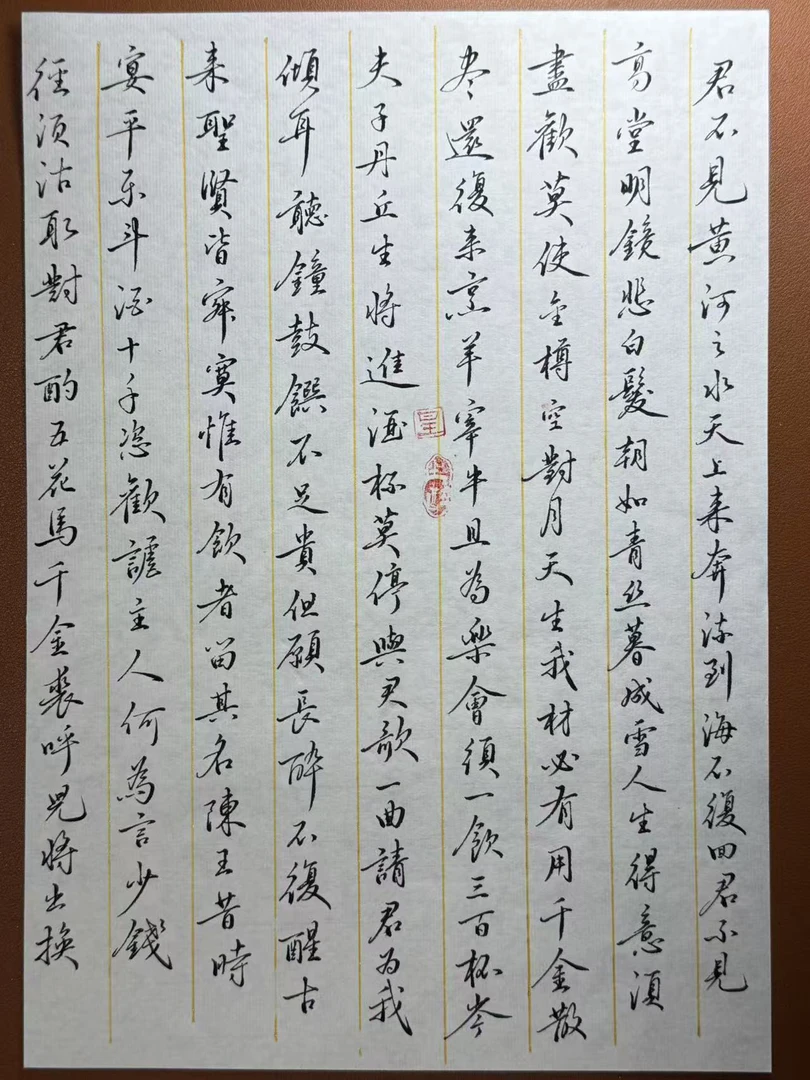 君不見黃河之水天上来奔流到海不復回君不見
高堂明鏡悲白髮朝如青丝暮成雪人生得意須
盡歡莫使金樽空對月天生我材必有用千金散
尽還復来烹羊宰牛且為樂會須一飲三百杯岑
夫子丹丘生将進酒杯莫停與君歌一曲請君为我
傾耳聽鐘鼓饌不足貴但願長醉不復醒古
来聖賢皆寂寞惟有飲者留其名陳王昔時
宴平乐斗酒十千恣歡謔主人何為言少錢
徑須沽取對君酌五花馬千金裘呼兒将出換